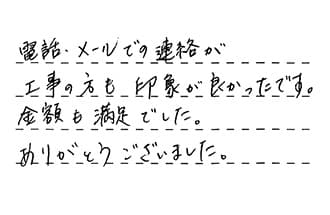 電話・メールでの連絡が
工事の方も印象が良かったです。
金額も満足でした。
ありがとうございました。